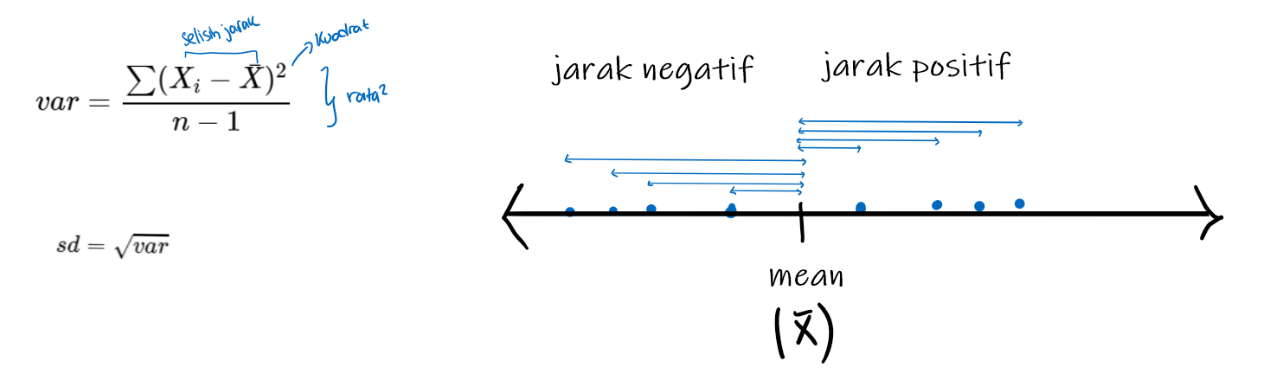 selisih jarak
kuadrat
var = ∑(Xᵢ − X̄)² / n − 1
rata²
sd = √var
jarak negatif
jarak positif
mean
(x̄)